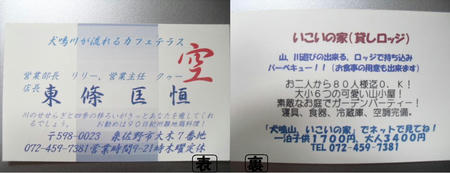 犬鳴川が流れるカフェテラス
空
営業部長 リリー、営業主任 クゥー
店長
東條 匡恒
川のせせらぎと四季の移ろいがきっとあなたを癒してくれ
るでしょう。 お勧めは90日給卵
〒598-0023 泉佐野市大木7番地
072-459-7381営業時間9-21時木曜定休
表
いこいの家(貸しロッジ)
山、川遊びの出来る、ロッジで持ち込み
バーベキュー!!(お食事の用意も出来ます)
お二人から80人様迄O.K!
大小6つの可愛い山小屋!
素敵なお庭でガーデンパーティー!
寝具、食器、冷蔵庫、空調完備。
「犬鳴山、いこいの家」でネットで見てね!
一泊子供1700円、大人3400円
TEL 072-459-7381
裏